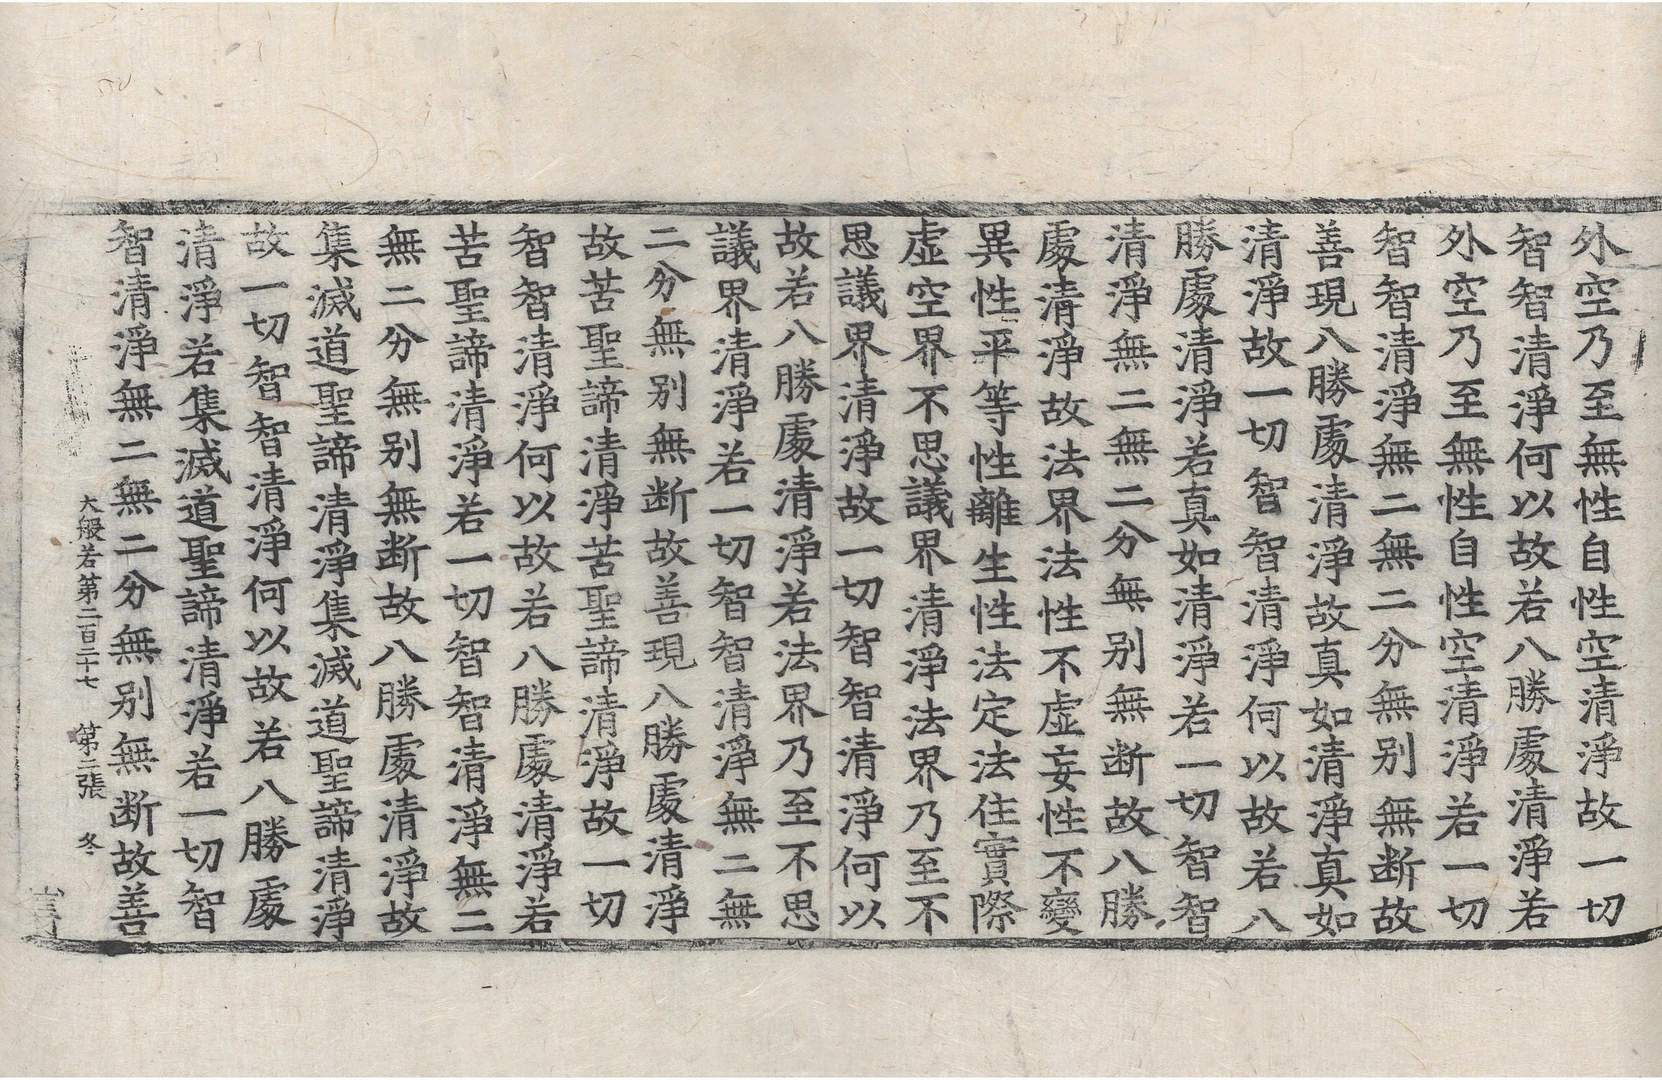 外空乃至無性自性空清淨故一切
智智清淨何以故若八勝處清淨若
外空乃至無性自性空清淨若一切
智智清淨無二無二分無别無断故
善現八勝處清淨故真如清淨真如
清淨故一切智智清淨何以故若八
勝處清淨若真如清淨若一切智智
清淨無二無二分無别無断故八勝
處清淨故法界法性不虛妄性不變
異性平等性離生性法定法住實際
虛空界不思議界清淨法界乃至不
思議界清淨故一切智智清淨何以
故若八勝處清淨若法界乃至不思
議界清淨若一切智智清淨無二無
二分無别無断故善現八勝處清淨
故苦聖諦清淨苦聖諦清淨故一切
智智清淨何以故若八勝處清淨若
苦聖諦清淨若一切智智清淨無二
無二分無别無断故八勝處清淨故
集滅道聖諦清淨集滅道聖諦清淨
故一切智智清淨何以故若八勝處
清淨若集滅道聖諦清淨若一切智
智清淨無二無二分無别無断故善
大般若第二百二十七 第二張 冬